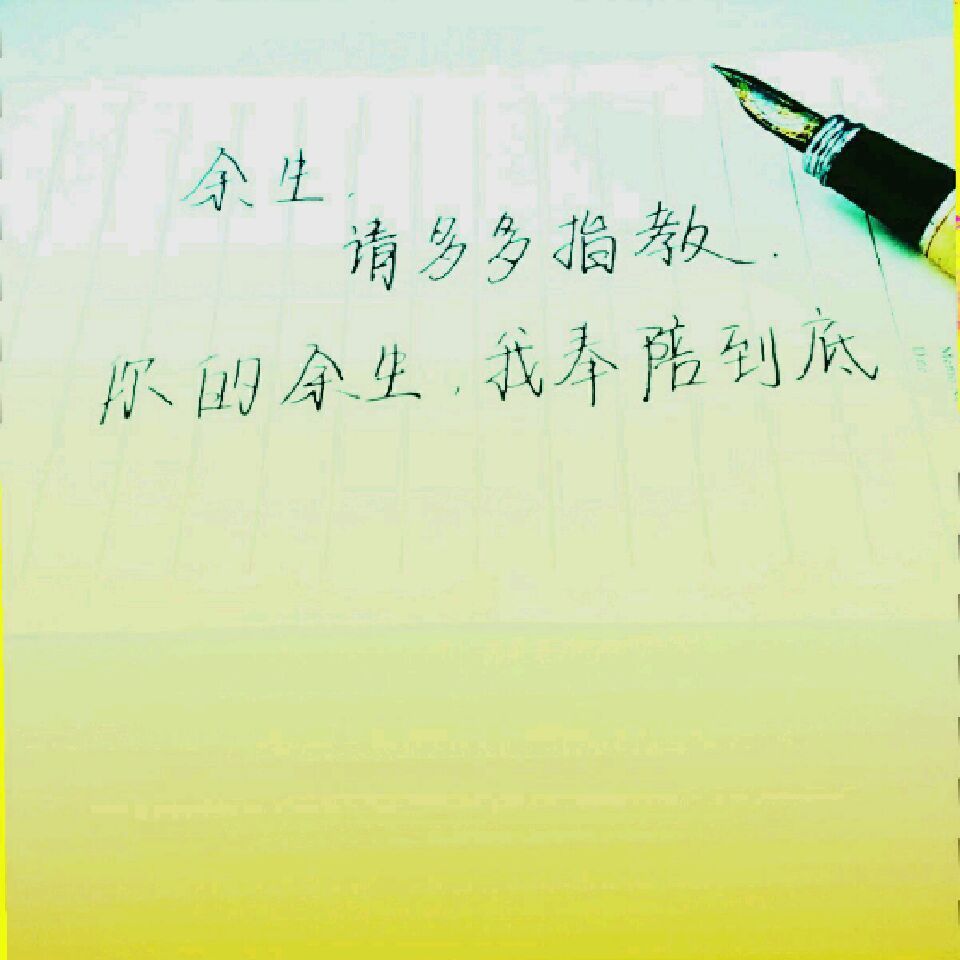 余生.
请多多指教.
你的余生,我奉陪到底